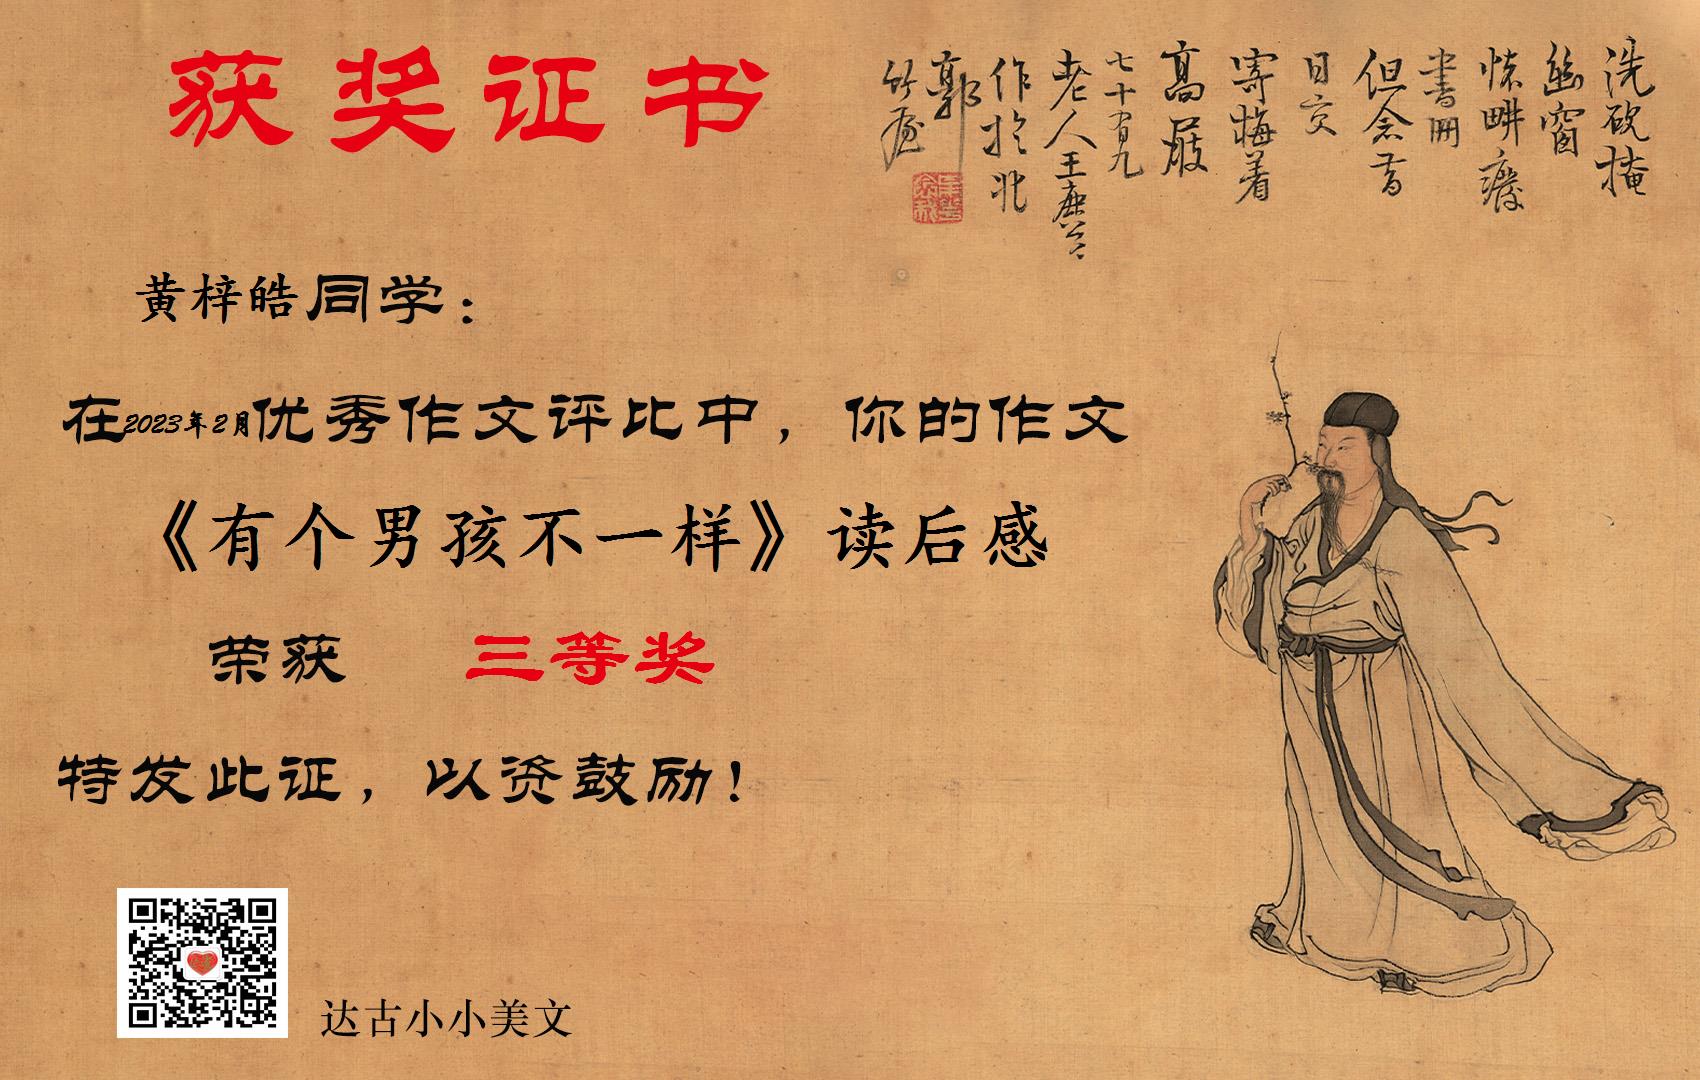 获奖证书
洗砚掩
幽窗
怀畊废
書冊
但念昔
日交
寄梅着
高屐
七十有九
老人王
作於北
郭
竹
黄梓皓同学：
在2023年2月优秀作文评比中，你的作文
《有个男孩不一样》读后感
荣获 三等奖
特发此证，以资鼓励！
达古小小美文